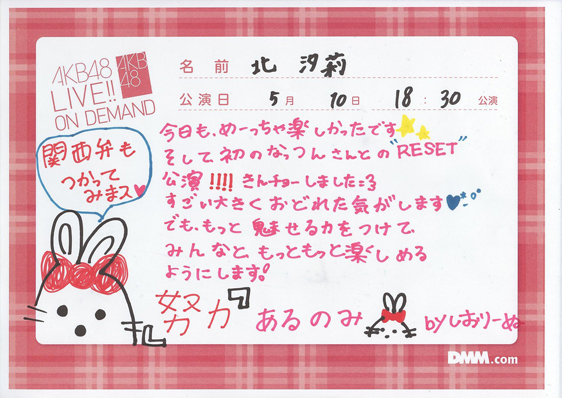 AKB48
LIVE!!
ON DEMAND
AKB
48
名前 北 汐莉
公演日 5月 10日 18:30 公演
今日も、めーっちゃ楽しかったです
そして初のなっつんさんとの"RESET"
公演!!!! きんチョーしました=3
すごい大きくおどれた気がします
でも、もっと 魅せる力をつけて、
みんなと、もっともっと楽しめる
ようにします!
関西弁も
つかって
みまス
努力』あるのみ byしおりーぬ
DMM.com